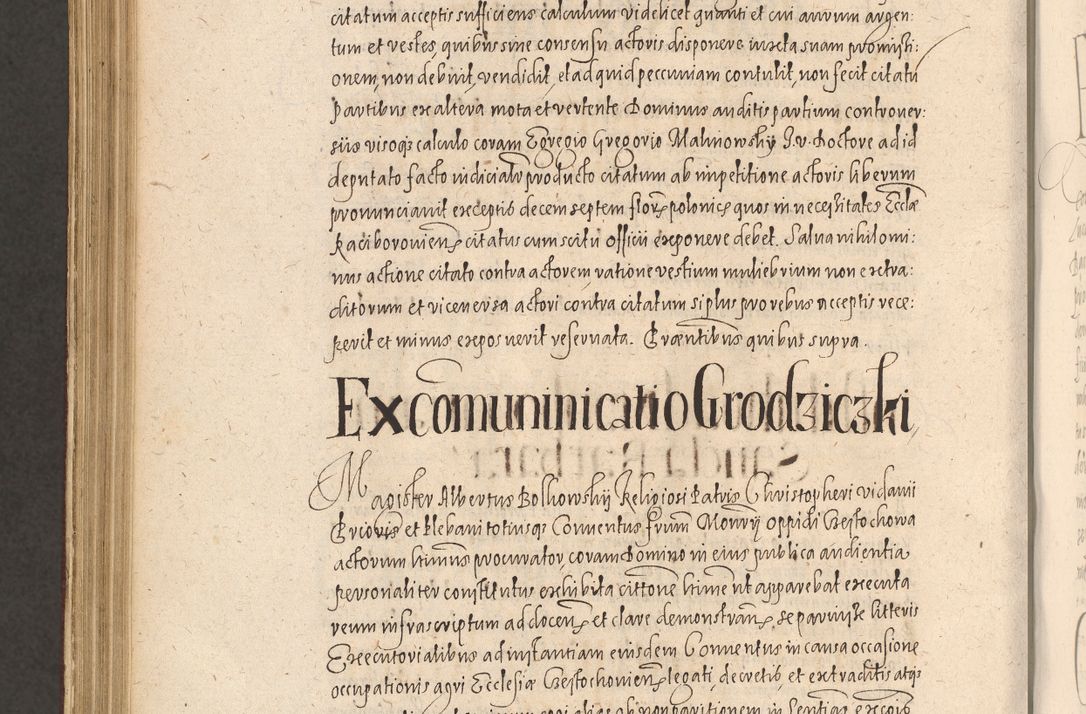 citatum acceptis sufficiens calculum videlicet quanti et cui aurum argen:
tum et vestes quibus sine consensu actoris disponere iuxta suam promissi:
onem, non debuit, vendidit, et ad quid peccuniam contulit, non fecit citatu
Partibus ex altera mota et vertente Dominus auditis partium controver:
siis visoqȝ calculo coram Egregio Gregorio Malinowskij J.v. Doctore ad id
deputato facto iudicialr producto citatum ab impetitione actoris liberum
pronunciavit exceptis decem septem florz polonicz quos in necessitates Ecclæ
Raciborovienz citatus cum scitu officii exponere debet. Salva nihilomi:
nus actione citato contra actorem ratione vestium muliebrium non extra:
ditorum et vice versa actori contra citatum si plus pro rebus acceptis rece:
perit et minus exposuerit reservata. Præntibus quibus supra.
Excomuninicatio Grodziczki
Magister Albertus Bolkowskij Religiosi Patris Christopheri vidavii
Prioris et Plebani totiusqȝ Conventus frum Monrij oppidi Czestochowa
actorum ltimus procurator, coram Domino in eius publica audientia
personaliter constitutus exhibita cittone ltime ut apparebat executa
reum infrascriptum ad docenz et clare demonstranz, se paruisse litteris
Executorialibus ad instantiam eiusdem Conventus in causa occasione
occupationis agri Ecclesiæ Czestochovienz legati, decretis, et extraditis atqȝ